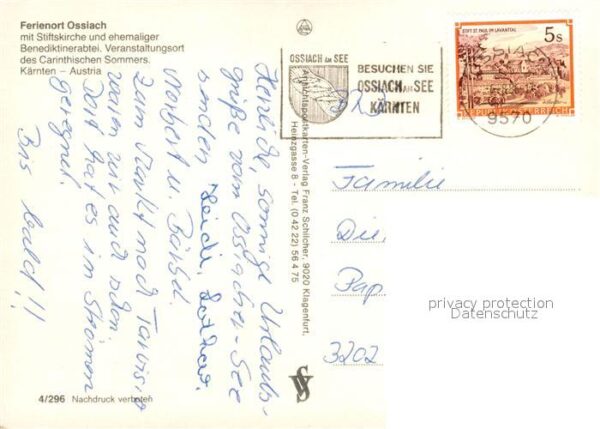 Ferienort Ossiach
mit Stiftskirche und ehemaliger
Benediktinerabtei. Veranstaltungsort
des Carinthischen Sommers.
Kärnten – Austria
OSSIACH AM SEE
BESUCHEN SIE
OSSIACH AM SEE
KÄRNTEN
STIFT ST. PAUL IM LAVANTTAL
5s
REPUBLIK ÖSTERREICH
9570
Herzliche, sonnige Urlaubs-
grüße vom Ossiacher-See
senden Heidi, Lothar,
Norbert u. Bärbel.
Zum Markt nach Tarvisio
waren wir auch schon.
Dort hat es in Strömen
geregnet.
Bis bald!!
Ansichtspostkarten-Verlag Franz Schilcher, 9020 Klagenfurt,
Heinzgasse 8 - Tel. (0 42 22) 56 4 75
Familie
Die
Pap
3202
privacy protection
Datenschutz
4/296 Nachdruck verboten